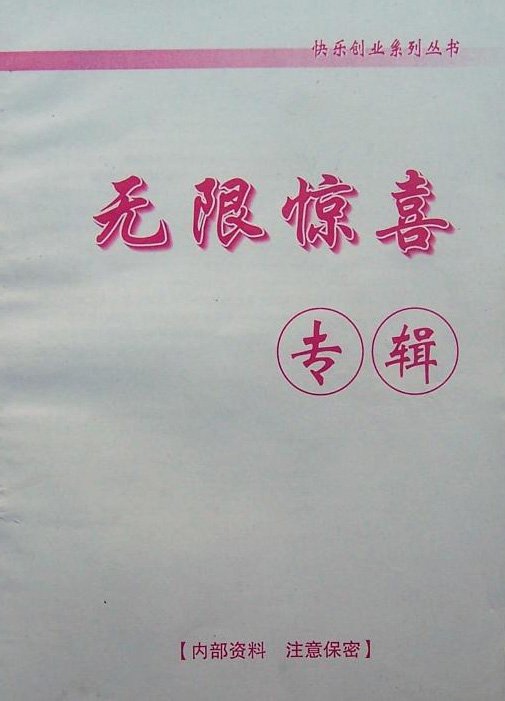 快乐创业系列丛书
无限惊喜
专辑
【内部资料　注意保密】